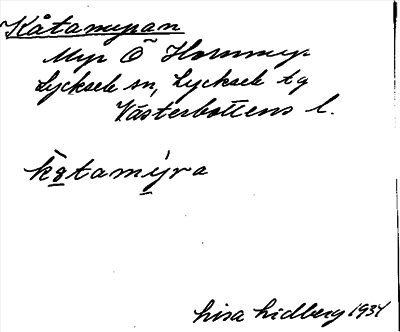 Kåtamyran
Myr Ö Hornmyr
Lycksele sn, Lycksele tg
Västerbottens l.
kåtamýra
Lisa Lidberg 1934